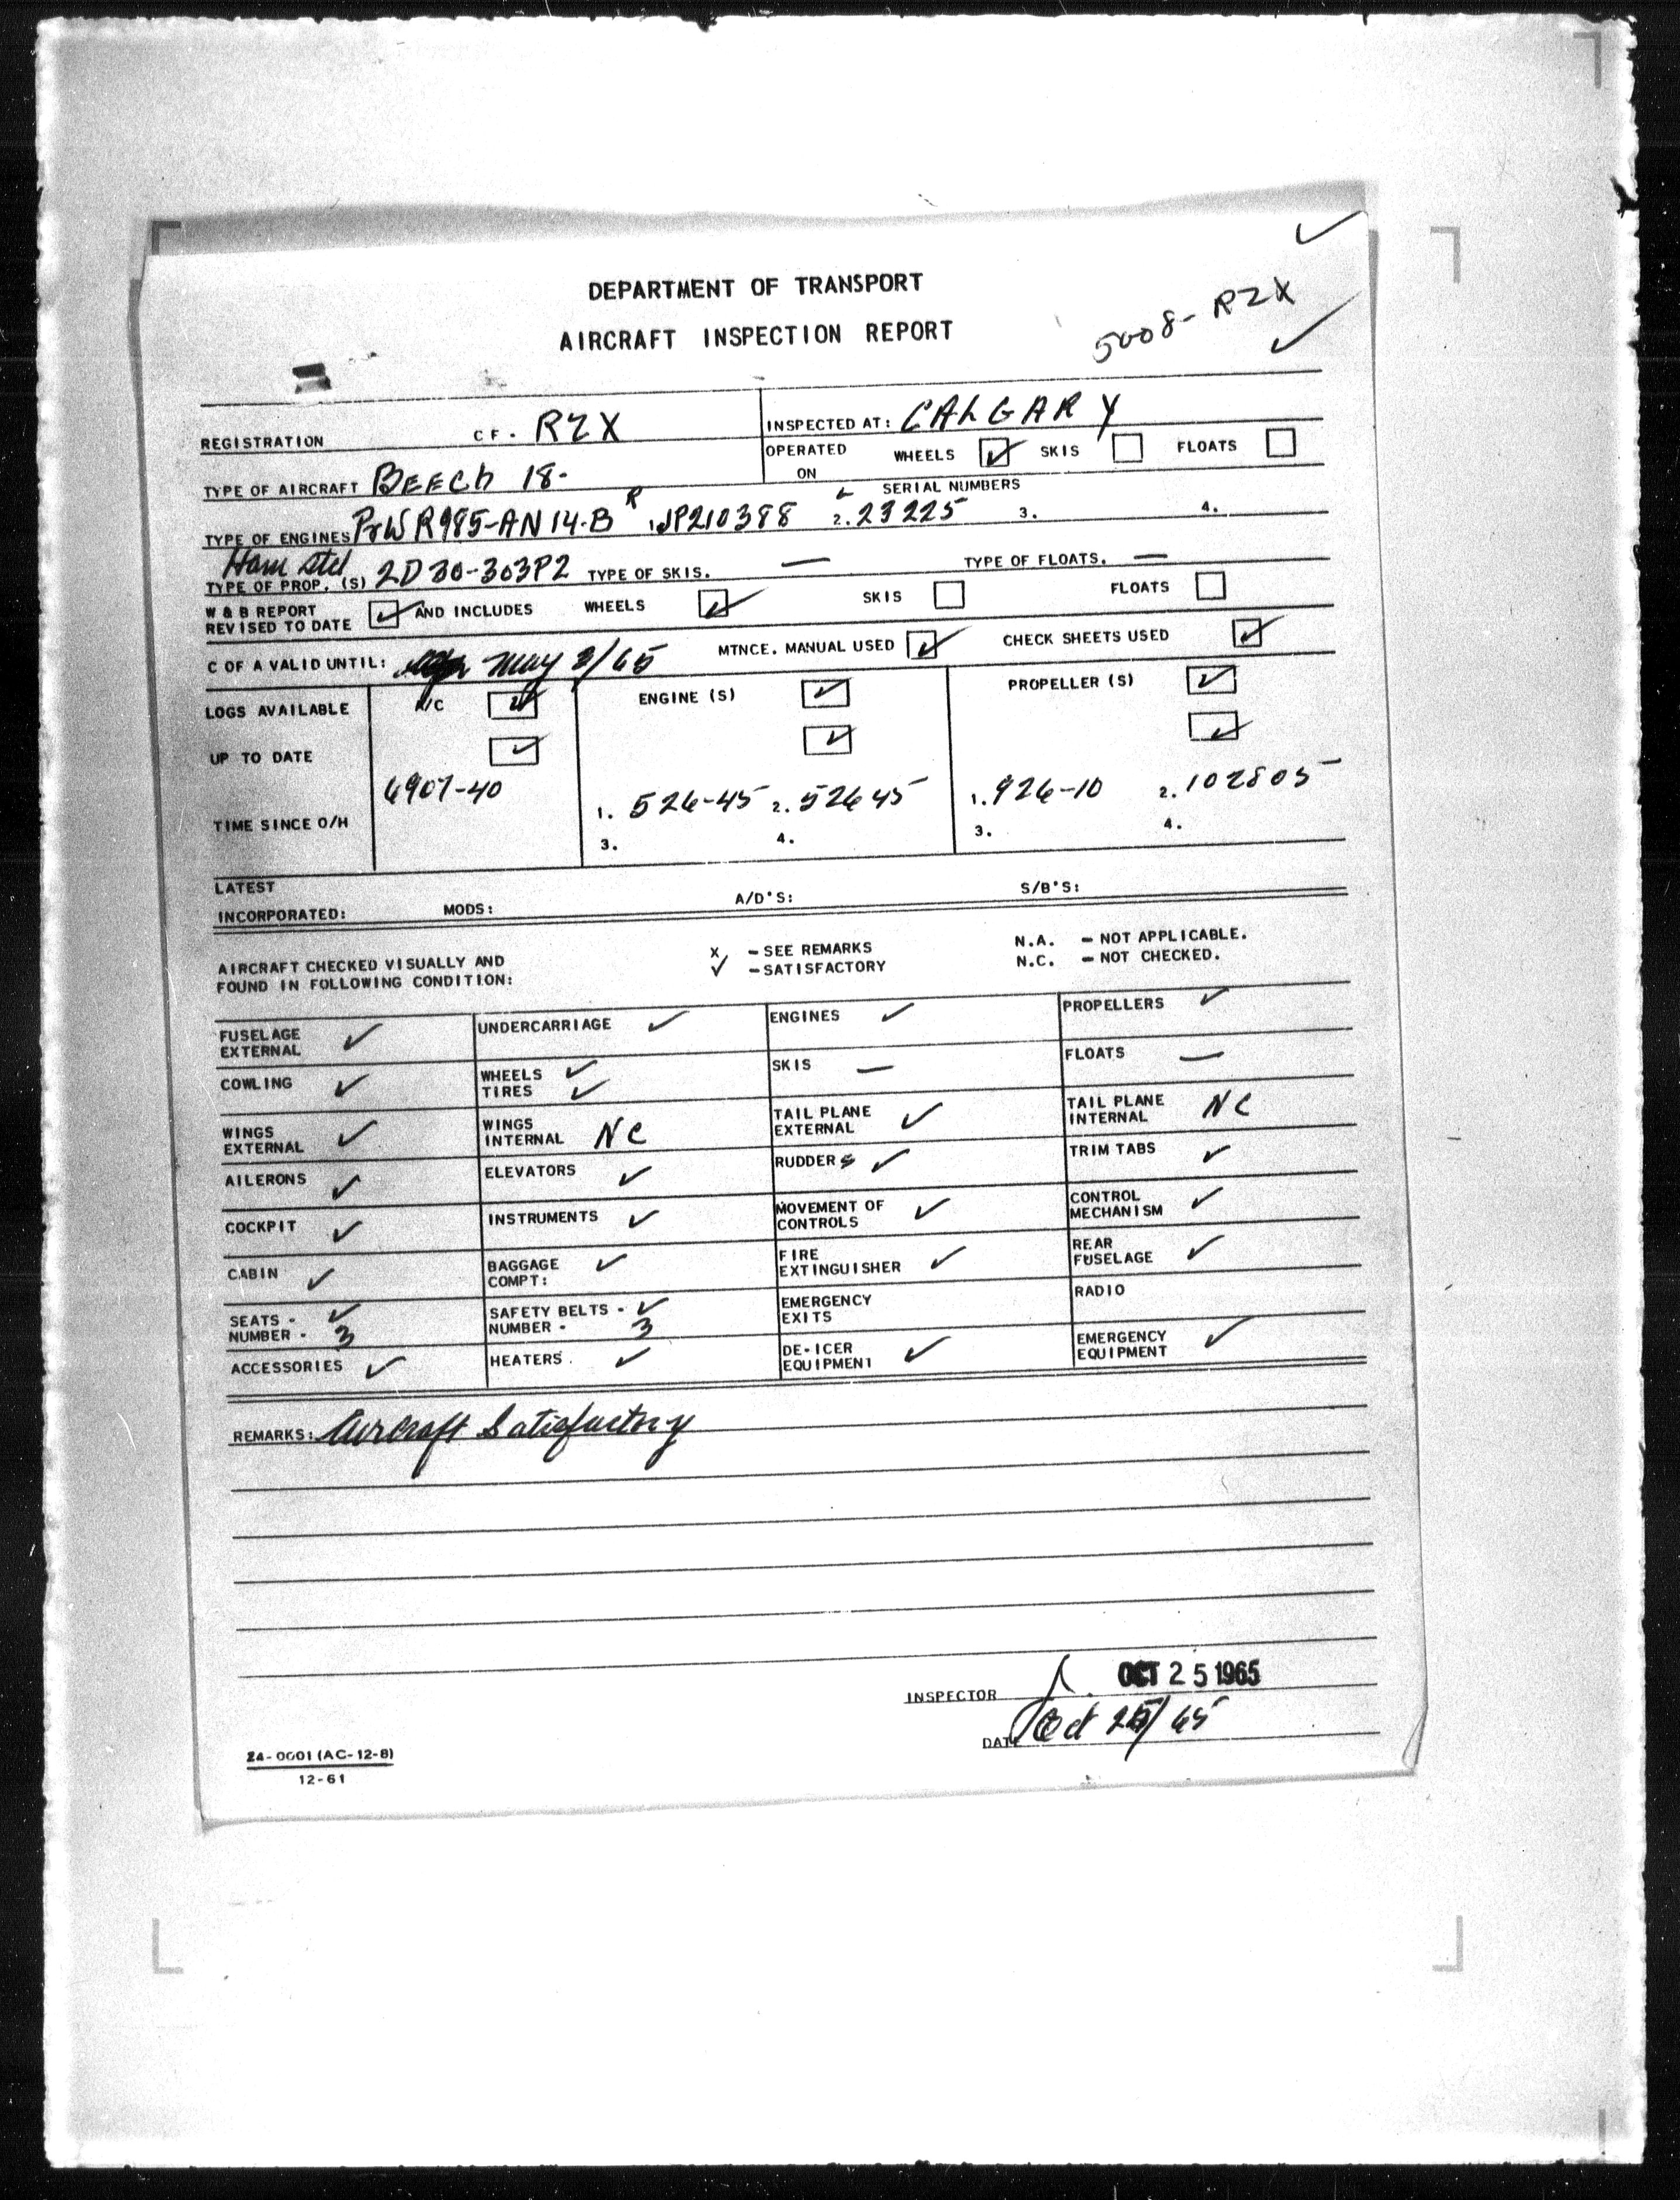 ✓
DEPARTMENT OF TRANSPORT
5008- RZX
AIRCRAFT INSPECTION REPORT ✓
REGISTRATION CF. RZX INSPECTED AT: CALGARY
TYPE OF AIRCRAFT BEECH 18- OPERATED ON WHEELS ☑ SKIS ☐ FLOATS ☐
R L SERIAL NUMBERS
TYPE OF ENGINES P&W R985-AN14-B 1. JP210388 2. 23225 3. 4.
Ham Std
TYPE OF PROP. (S) 2D30-303P2 TYPE OF SKIS. — TYPE OF FLOATS. —
W & B REPORT
REVISED TO DATE ☑ AND INCLUDES WHEELS ☑ SKIS ☐ FLOATS ☐
C OF A VALID UNTIL: May 2/65 MTNCE. MANUAL USED ☑ CHECK SHEETS USED ☑
LOGS AVAILABLE A/C ☑ ENGINE (S) ☑ PROPELLER (S) ☑
UP TO DATE ☑ ☑ ☑
6907-40 1. 526-45 2. 52645 1. 926-10 2. 102805
TIME SINCE O/H 3. 4. 3. 4.
LATEST
INCORPORATED: MODS: A/D'S: S/B'S:
AIRCRAFT CHECKED VISUALLY AND X - SEE REMARKS N.A. - NOT APPLICABLE.
FOUND IN FOLLOWING CONDITION: ✓ - SATISFACTORY N.C. - NOT CHECKED.
FUSELAGE EXTERNAL ✓ UNDERCARRIAGE ✓ ENGINES ✓ PROPELLERS ✓
COWLING ✓ WHEELS ✓ TIRES ✓ SKIS — FLOATS —
WINGS EXTERNAL ✓ WINGS INTERNAL NC TAIL PLANE EXTERNAL ✓ TAIL PLANE INTERNAL NC
AILERONS ✓ ELEVATORS ✓ RUDDERS ✓ TRIM TABS ✓
COCKPIT ✓ INSTRUMENTS ✓ MOVEMENT OF CONTROLS ✓ CONTROL MECHANISM ✓
CABIN ✓ BAGGAGE COMPT: ✓ FIRE EXTINGUISHER ✓ REAR FUSELAGE ✓
SEATS - ✓ NUMBER - 3 SAFETY BELTS - ✓ NUMBER - 3 EMERGENCY EXITS RADIO
ACCESSORIES ✓ HEATERS. ✓ DE-ICER EQUIPMENT ✓ EMERGENCY EQUIPMENT ✓
REMARKS: Aircraft Satisfactory
INSPECTOR OCT 25 1965
DATE Oct 25/65
24-0001 (AC-12-8)
12-61